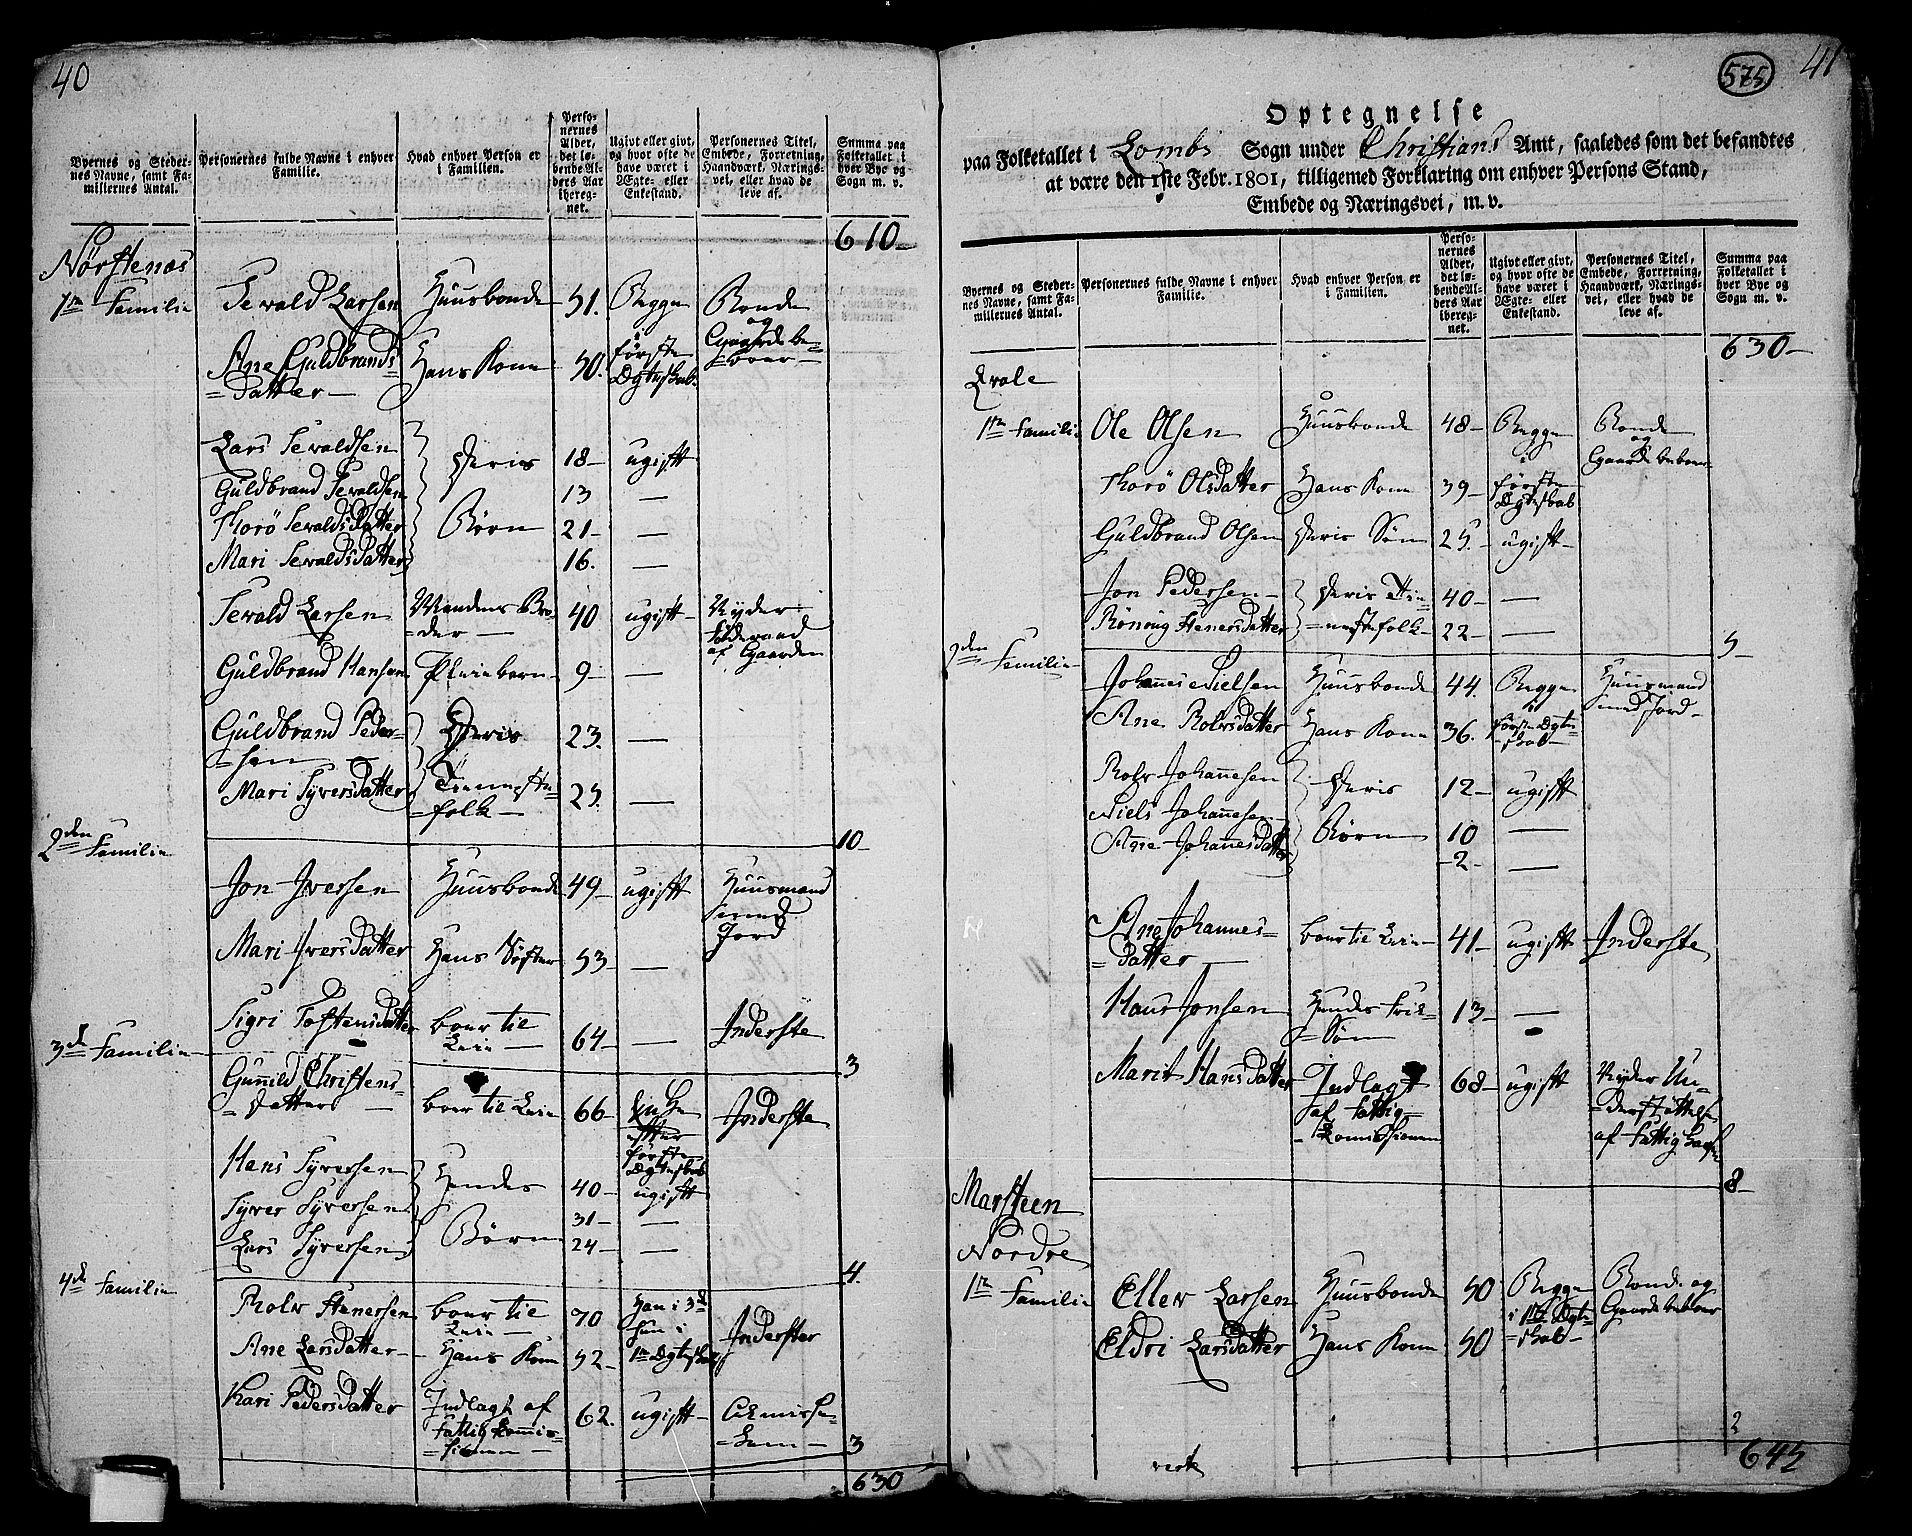 40
Byernes og Steder-
nes Navne, samt Fa-
millernes Antal.
Personernes fulde Navne i enhver
Familie.
Hvad enhver Person er
i Familien.
Perso-
nernes
Alder,
det lø-
bende Al-
ders Aar
iberegnet.
Ugivt eller givt,
og hvor ofte de
have været i
Ægte- eller
Enkestand.
Personernes Titel,
Embede, Forretning,
Haandværk, Nærings-
vei, eller hvad de
leve af.
Summa paa
Folketallet i
hver Bye og
Sogn m. v.
610-
Nørstenæs
1te Familie
Sewald Larsen Huusbonde 51. Begge Bonde
i og
Ane Guldbrands= Hans Kone 50. første Gaardbe=
=Datter Ægteskab =boer
Lars Sewaldsen Deris 18 ugift
Guldbrand Sewaldsen 13 —
Thorø Sewaldsdatter Børn 21 —
Mari Sewaldsdatter 16. —
Sewald Larsen Mandens Bro= 40 ugift Nyder
=der Føderaad
af Gaarden
Guldbrand Hansen Pleiebarn 9 —
Guldbrand Peder= Deris 23. —
=sen
Mari Syversdatter Tienneste= 25. —
=folk
10
2den Familie
Jon Iversen Huusbonde 49 ugift Huusmand
med
Jord
Mari Iversdatter Hans Søster 53 —
Sigri Tostensdatter boer til 64 — Inderste
Leie
3
3de Familie
Gunild Christens= boer til Leie 66 Enke Inderste
=datter efter
første
Ægteskab
Hans Syversen Hendes 40 ugift
Syver Syversen 31 —
Lars Syversen Børn 24 —
4.
4de Familie
Rolv Stenersen boer til 70 Han i 3de
Leie hun i Inderster
Ane Larsdatter Hans Kone 52 1te Ægteskab
Kari Pedersdatter Indlagt af 62. ugift Almisse=
Fattig Commis= =Lem
=sionen
3
630
575
41
Optegnelse
paa Folketallet i Lombs Sogn under Christians Amt, saaledes som det befandtes
at være den 1ste Febr. 1801, tilligemed Forklaring om enhver Persons Stand,
Embede og Næringsvei, m. v.
Byernes og Steder-
nes Navne, samt Fa-
millernes Antal.
Personernes fulde Navne i enhver
Familie.
Hvad enhver Person er
i Familien.
Perso-
nernes
Alder,
det lø-
bende Al-
ders Aar
iberegnet.
Ugivt eller givt,
og hvor ofte de
have været i
Ægte- eller
Enkestand.
Personernes Titel,
Embede, Forretning,
Haandværk, Nærings-
vei, eller hvad de
leve af.
Summa paa
Folketallet i
hver Bye og
Sogn m. v.
630-
Qvale
1te Familie Ole Olsen Huusbonde 48 Begge Bonde
i og
Gaardbeboer
Thorø Olsdatter Hans Kone 39 første
Ægteskab
Guldbrand Olsen Deris Søn 25. ugift
Jon Pedersen Deris Tie= 40 —
Rønnug Stenersdatter =nestefolk 22 —
5
2den Familie
Johannes Nielsen Huusbonde 44. Begge Huusmand
i med Jord
Ane Rolvsdatter Hans Kone 36. første Ægte=
=skab
Rolv Johannesen Deris 12 ugift
Niels Johannesen Børn 10 —
Ane Johannesdatter 2 —
Ane Johannes= boer til Leie 41 ugift Inderste
=datter
Hans Jonsen Hendes 13 —
=Søn
Marit Hansdatter Indlagt 68 ugift Nyder Un=
af Fattig= =derstøttelse
Comissionen af Fattig
8
Marsteen
Nordre
1te Familie Eller Larsen Huusbonde 50 Begge Bonde og
i 1te Ægte= Gaardbeboer
Eldri Larsdatter Hans Kone 50 =skab
2
645